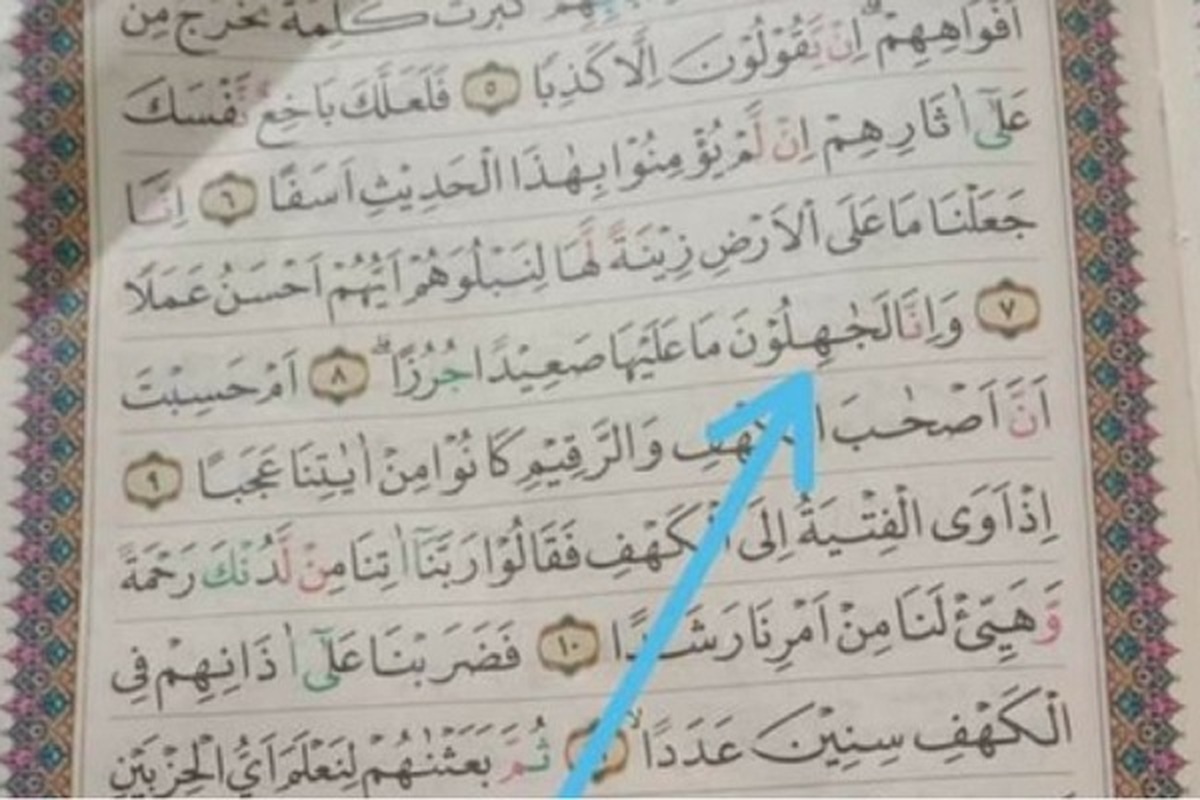 كَبُرَتْ كَلِمَةً تَخْرُجُ مِنْ
اَفْوَاهِهِمْۗ اِنْ يَّقُوْلُوْنَ اِلَّا كَذِبًا ٥ فَلَعَلَّكَ بَاخِعٌ نَّفْسَكَ
عَلٰٓى اٰثَارِهِمْ اِنْ لَّمْ يُؤْمِنُوْا بِهٰذَا الْحَدِيْثِ اَسَفًا ٦ اِنَّا
جَعَلْنَا مَا عَلَى الْاَرْضِ زِيْنَةً لَّهَا لِنَبْلُوَهُمْ اَيُّهُمْ اَحْسَنُ عَمَلًا
٧ وَاِنَّا لَجٰهِلُوْنَ مَا عَلَيْهَا صَعِيْدًا جُرُزًاۗ ٨ اَمْ حَسِبْتَ
اَنَّ اَصْحٰبَ الْكَهْفِ وَالرَّقِيْمِ كَانُوْا مِنْ اٰيٰتِنَا عَجَبًا ٩
اِذْ اَوَى الْفِتْيَةُ اِلَى الْكَهْفِ فَقَالُوْا رَبَّنَآ اٰتِنَا مِنْ لَّدُنْكَ رَحْمَةً
وَّهَيِّئْ لَنَا مِنْ اَمْرِنَا رَشَدًا ١٠ فَضَرَبْنَا عَلٰٓى اٰذَانِهِمْ فِى
الْكَهْفِ سِنِيْنَ عَدَدًاۙ ثُمَّ بَعَثْنٰهُمْ لِنَعْلَمَ اَيُّ الْحِزْبَيْنِ